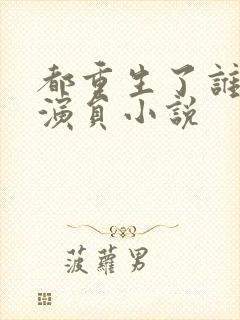 都重生了誰
演員小説
菠蘿男